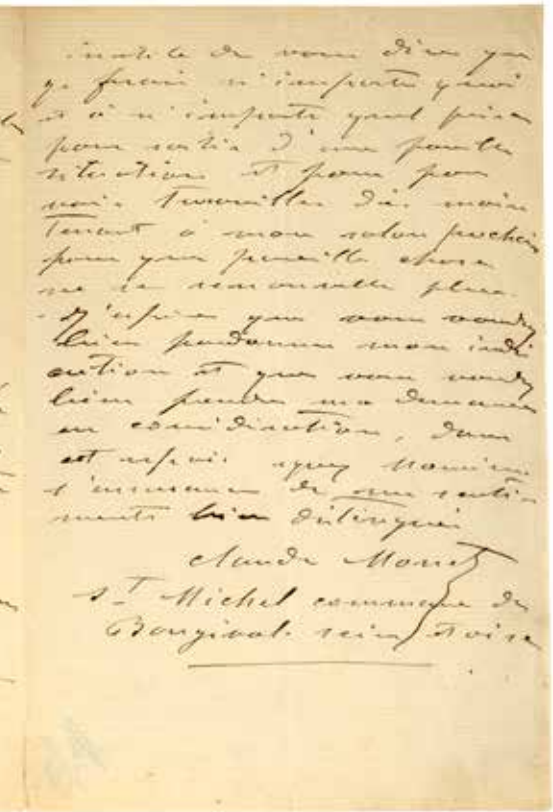 inutile de vous dire que
je ferai n'importe quoi
et à n'importe quel prix
pour sortir d'une pareille
situation et pour pou
voir travailler dès main
tenant à mon salon prochain
pour que pareille chose
ne se renouvelle plus.
J'espère que vous voudrez
bien pardonner mon indis
crétion et que vous voudrez
bien prendre ma demande
en considération, dans
cet espoir agréez Monsieur
l'assurance de mes senti
ments bien distingués
Claude Monet
St Michel commune de
Bougival seine et oise